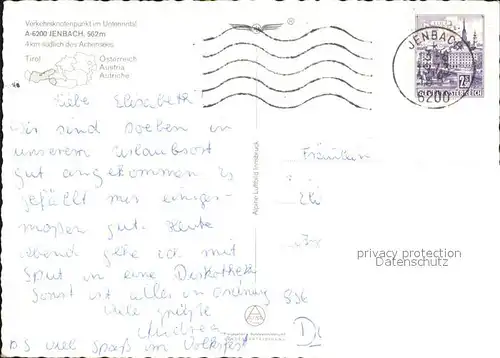 Verkehrsknotenpunkt im Unterinntal
A-6200 JENBACH, 562m
4 km südlich des Achensees
Tirol
Österreich
Austria
Autriche
JENBACH
6200
Liebe Elisabeth
Wir sind soeben in
unserem Urlaubsort
gut angekommen. Es
gefällt mir einiger-
maßen gut. Heute
abend gehe ich mit
in eine Diskothek
Sonst ist alles in Ordnung
Viele Grüße
Andrea
PS viel Spaß im Volksfest
Alpine Luftbild Innsbruck
Fräulein
Eli
privacy protection
Datenschutz
836
D